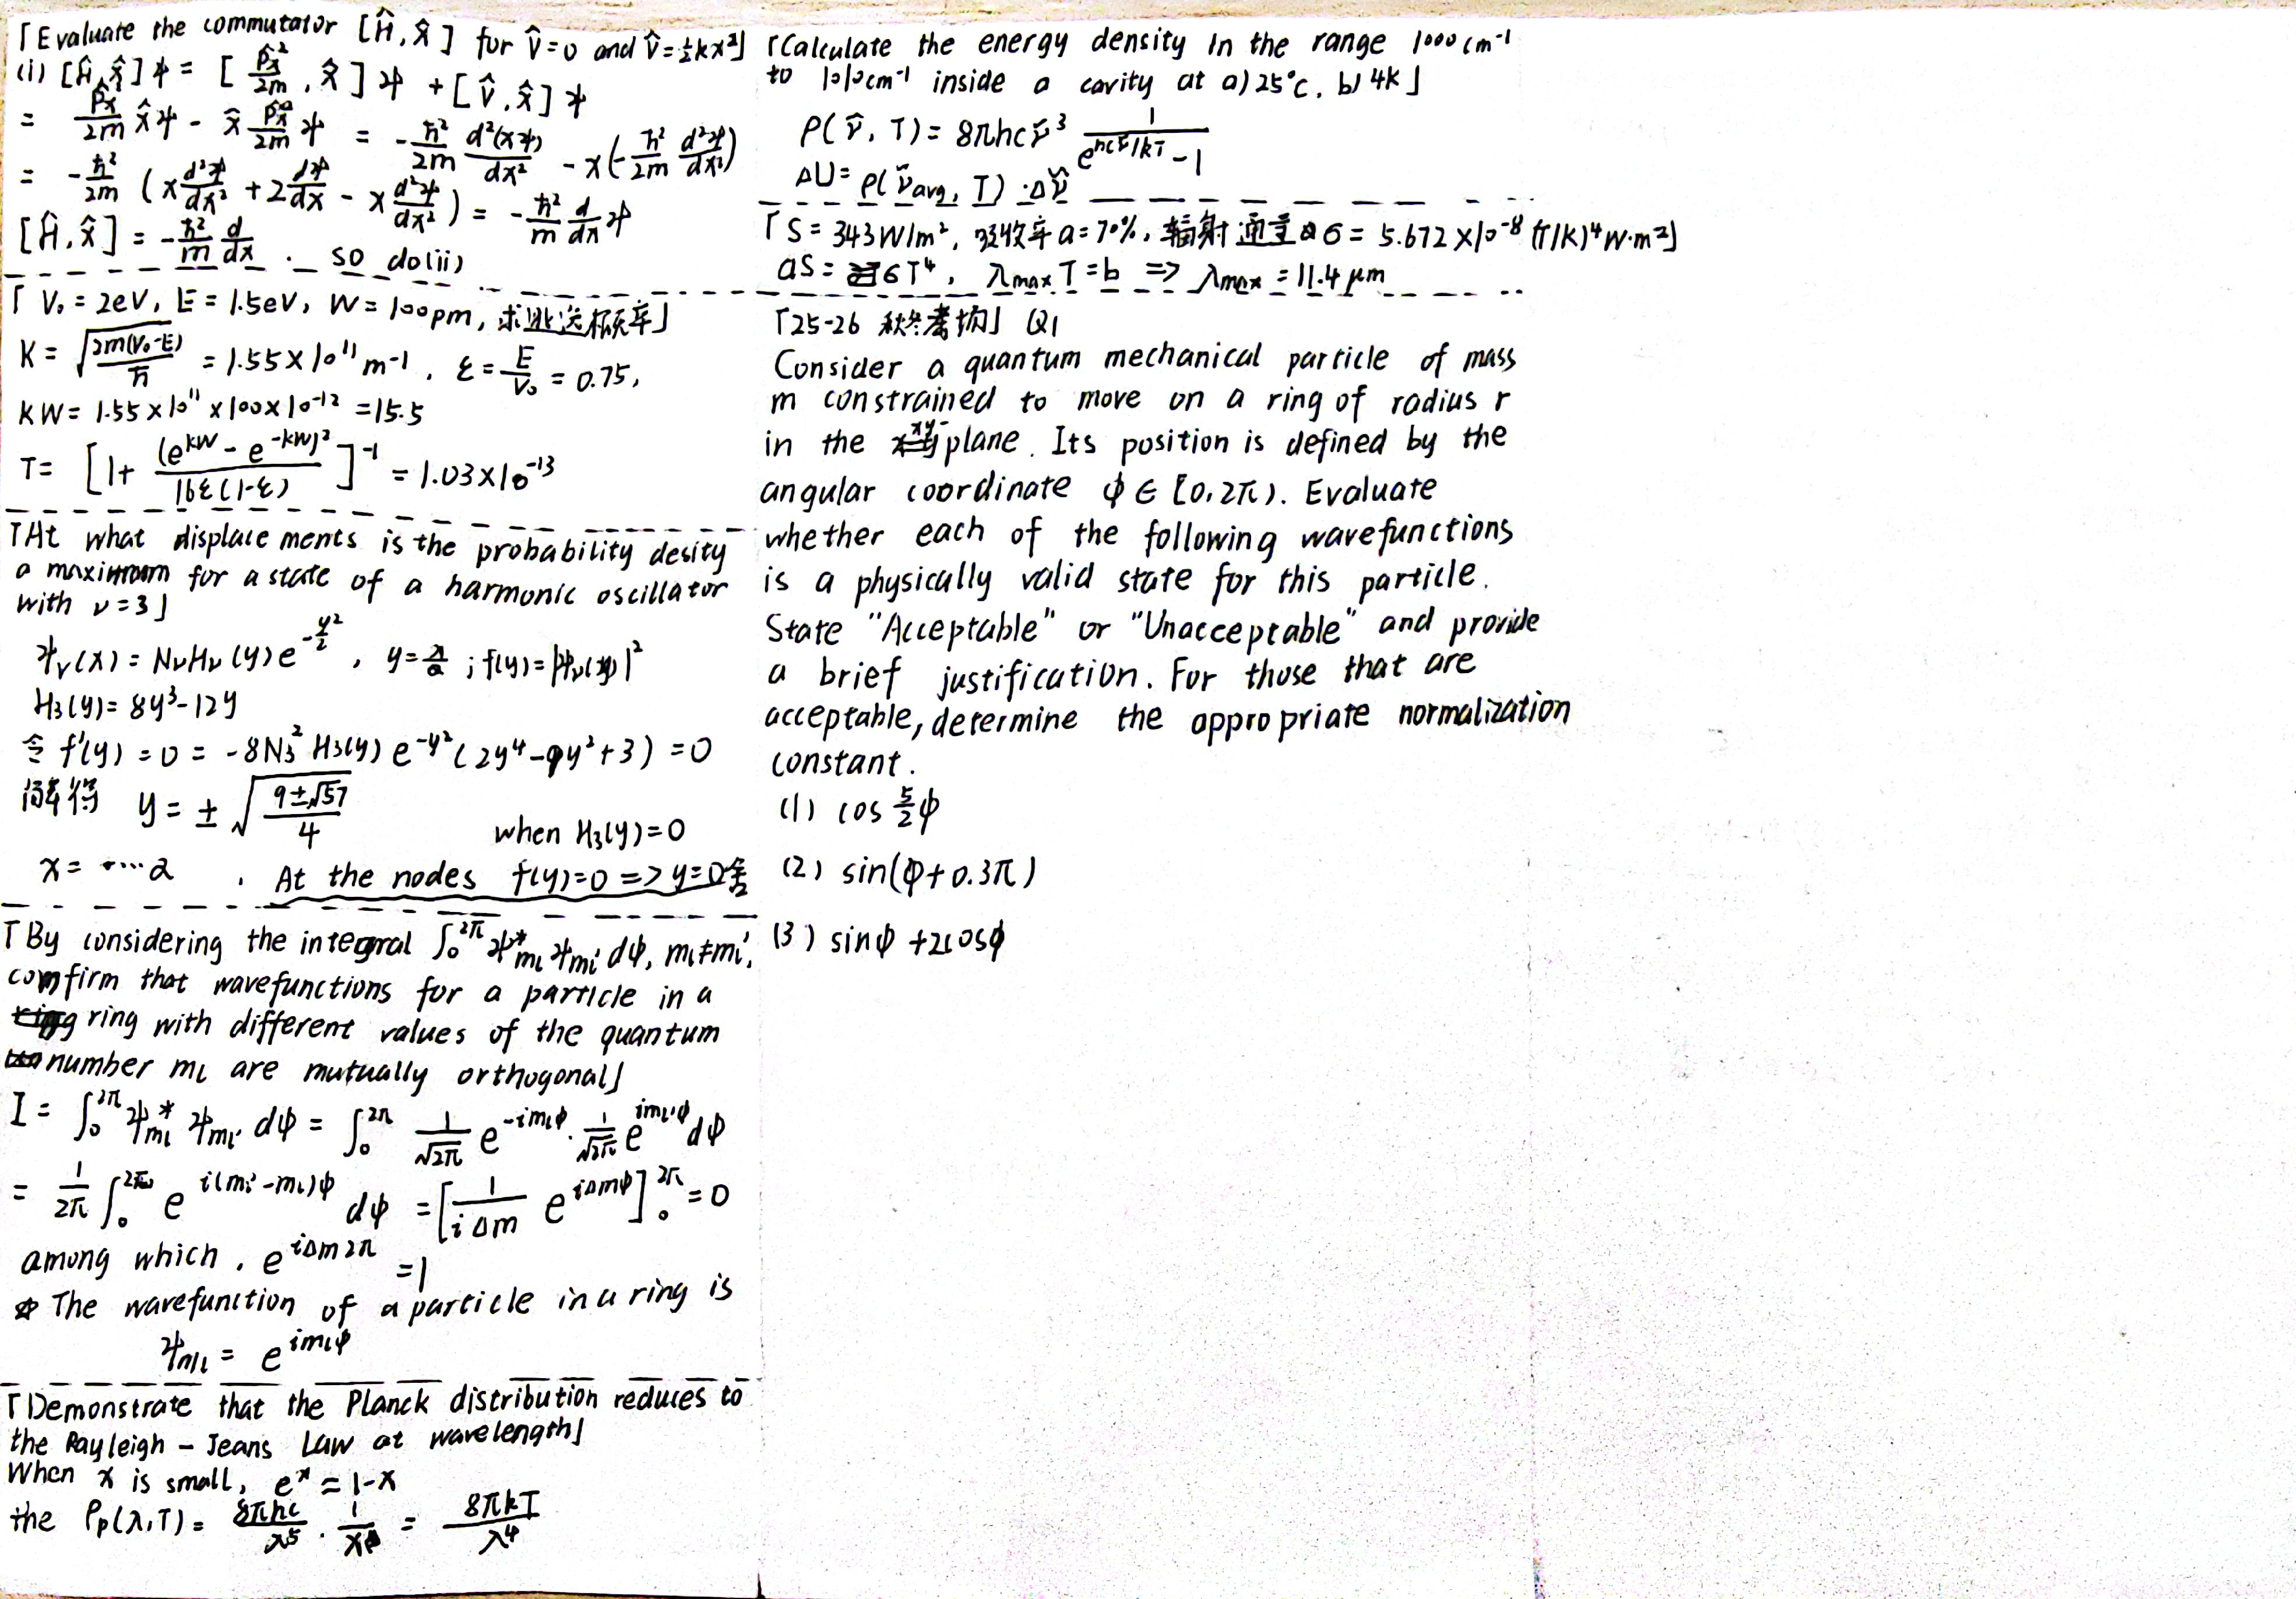 「Evaluate the commutator [Ĥ, x̂] for V̂=0 and V̂=½kx²」
(i) [Ĥ, x̂]ψ = [p̂x²/2m, x̂]ψ + [V̂, x̂]ψ
= p̂x/2m x̂ψ - x̂ p̂x²/2m ψ = -ħ²/2m d²(xψ)/dx² - x(-ħ²/2m d²ψ/dx²)
= -ħ²/2m (x d²ψ/dx² + 2 dψ/dx - x d²ψ/dx²) = -ħ²/m d/dx ψ
[Ĥ, x̂] = -ħ²/m d/dx . so do(ii)
「V₀ = 2eV, E = 1.5eV, W = 100pm, 求逃逸概率」
K = √(2m(V₀-E))/ħ = 1.55×10¹¹ m⁻¹, ε = E/V₀ = 0.75,
KW = 1.55×10¹¹ ×100×10⁻¹² = 15.5
T = [1+ (e^kW - e^-kW)²/16ε(1-ε)]⁻¹ = 1.03×10⁻¹³
「At what displacements is the probability desity
a maximum for a state of a harmonic oscillator
with ν=3」
ψν(x) = NνHν(y)e^(-y²/2), y = x/α ; f(y) = |ψν(y)|²
H₃(y) = 8y³-12y
令 f'(y) = 0 = -8N₃² H₃(y) e^-y² (2y⁴-9y²+3) = 0
解得 y = ± √((9±√57)/4)
when H₃(y)=0
x = ····α . At the nodes f(y)=0 => y=0舍
「By considering the integral ∫₀^2π ψ*ml ψml' dφ, ml≠ml',
comfirm that wavefunctions for a particle in a
ring with different values of the quantum
number ml are mutually orthogonal」
I = ∫₀^2π ψ*ml ψml' dφ = ∫₀^2π 1/√2π e^-imlφ · 1/√2π e^iml'φ dφ
= 1/2π ∫₀^2π e^i(ml'-ml)φ dφ = [1/iΔm e^iΔmφ]₀^2π = 0
among which, e^iΔm2π = 1
The wavefunction of a particle in a ring is
ψml = e^imlφ
「Demonstrate that the Planck distribution reduces to
the Rayleigh - Jeans Law at wavelength」
When x is small, e^x ≈ 1-x
the ρp(λ,T) = 8πhc/λ⁵ · 1/x = 8πkT/λ⁴
「Calculate the energy density in the range 1000cm⁻¹
to 1010cm⁻¹ inside a cavity at a) 25°C. b) 4K」
ρ(ν̃, T) = 8πhcν̃³ 1/(e^(hcν̃/kT) - 1)
ΔU = ρ(ν̃avg, T) · Δν̃
「S = 343W/m², 吸收率a=70%, 辐射通量σ = 5.672×10⁻⁸ (T/K)⁴W·m²」
aS = σT⁴, λmax T = b => λmax = 11.4 μm
「25-26 秋冬 」 Q1
Consider a quantum mechanical particle of mass
m constrained to move on a ring of radius r
in the xy-plane. Its position is defined by the
angular coordinate φ ∈ [0, 2π). Evaluate
whether each of the following wavefunctions
is a physically valid state for this particle.
State "Acceptable" or "Unacceptable" and provide
a brief justification. For those that are
acceptable, determine the appropriate normalization
constant.
(1) cos 5/2 φ
(2) sin(φ+0.3π)
(3) sinφ +2cosφ